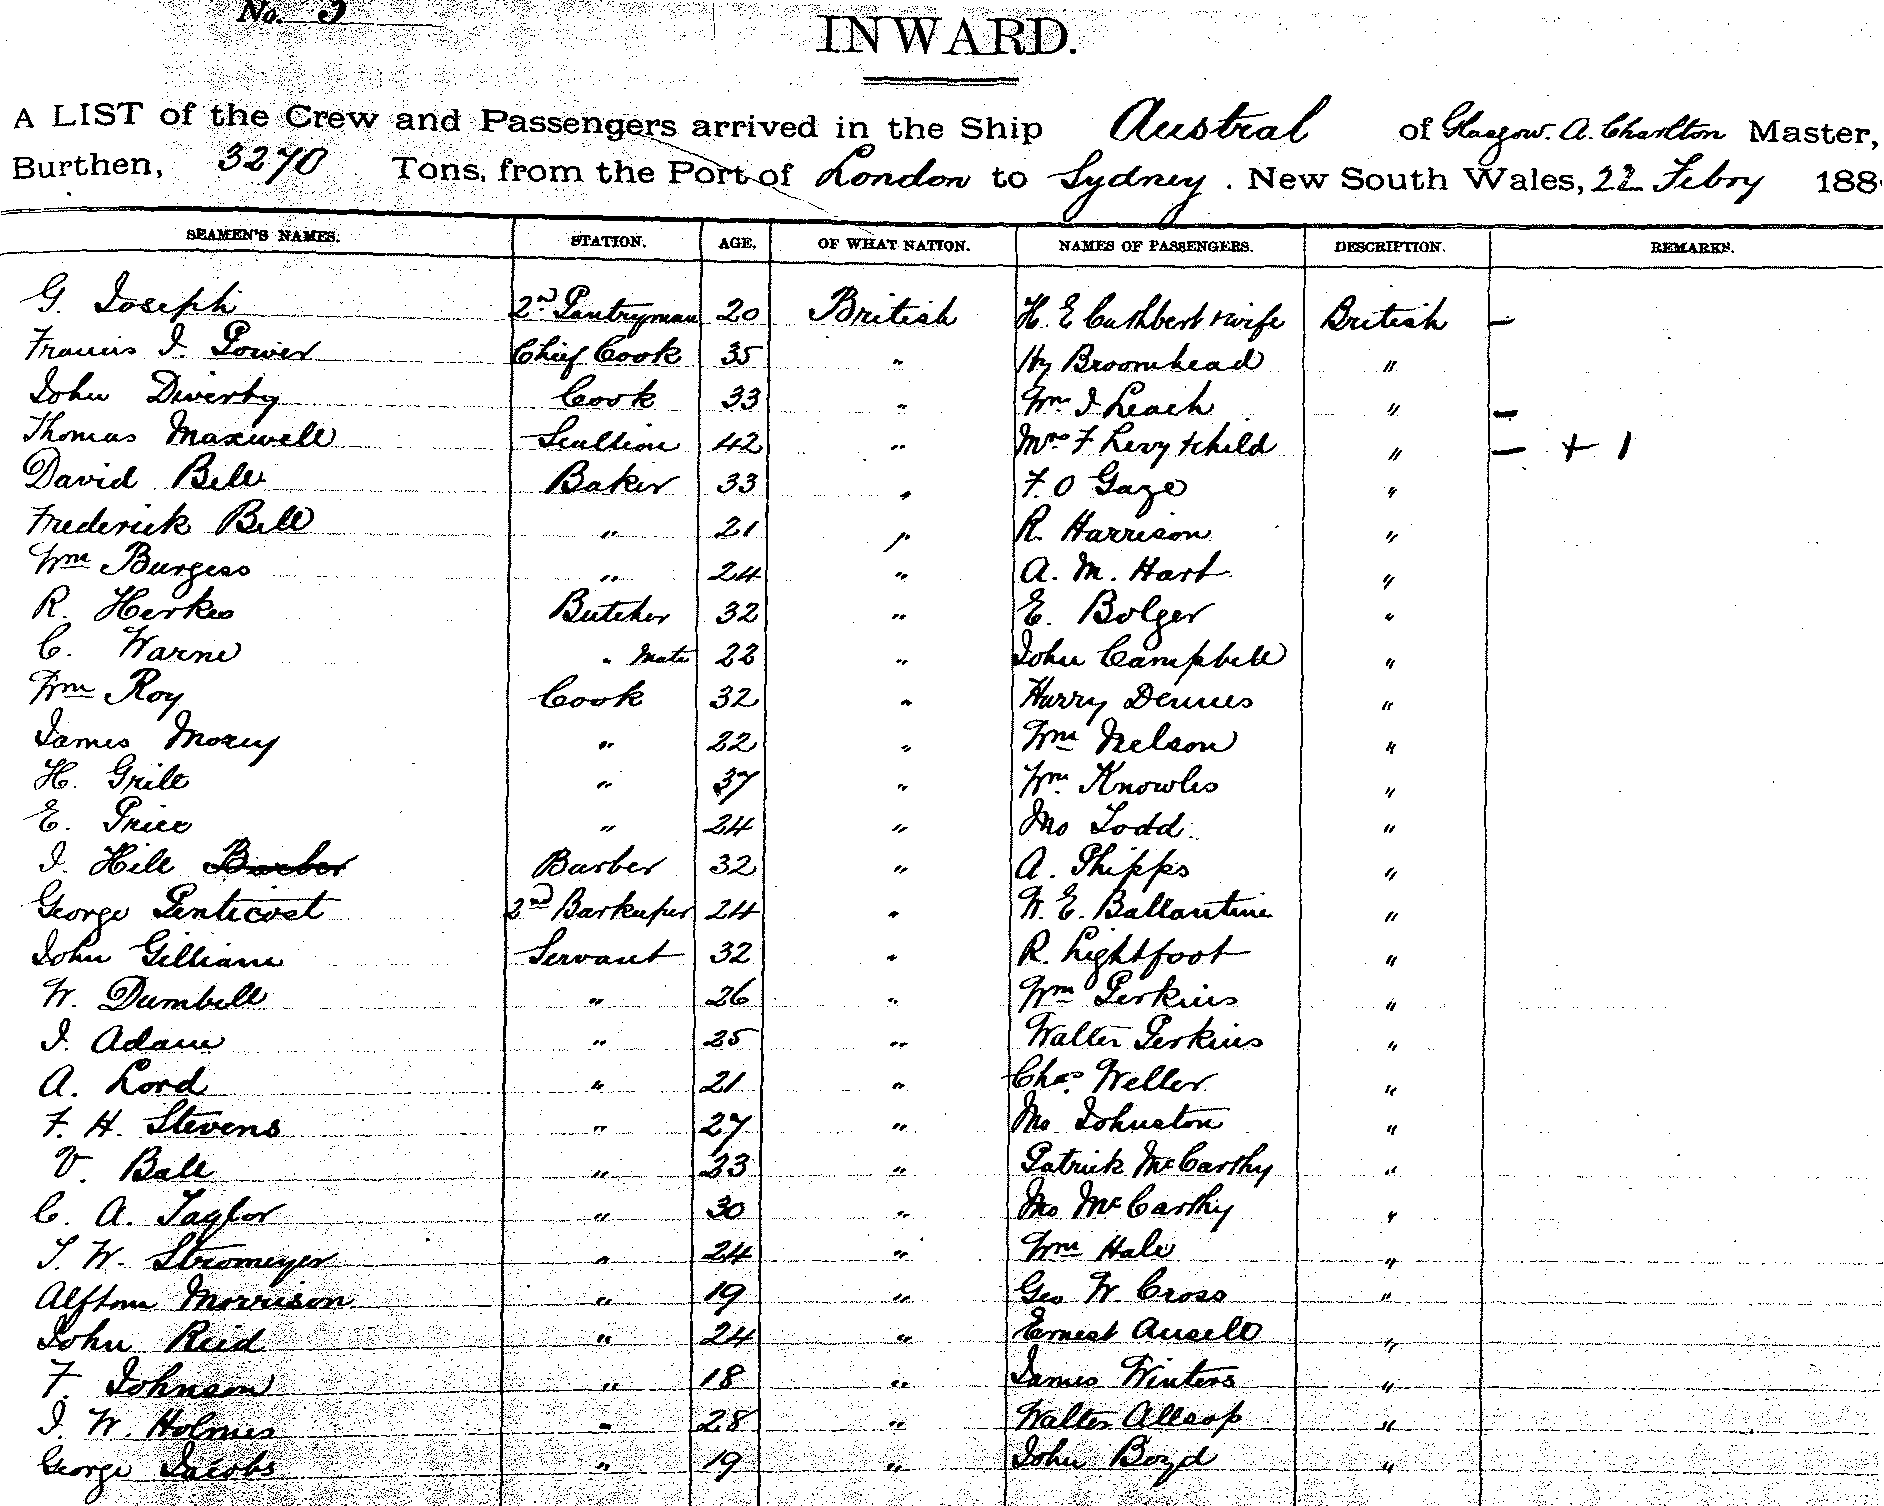 No. 5
INWARD.
A LIST of the Crew and Passengers arrived in the Ship Austral of Glasgow. A. Charlton Master,
Burthen, 3270 Tons, from the Port of London to Sydney. New South Wales, 22 Febry 188
SEAMEN'S NAMES. STATION. AGE. OF WHAT NATION. NAMES OF PASSENGERS. DESCRIPTION. REMARKS.
G. Joseph 2nd Pantryman 20 British H. E Cuthbert & wife British —
Francis J. Power Chief Cook 35 " Hy Broomhead "
John Diverty Cook 33 " Wm J Leach " —
Thomas Maxwell Scullion 42 " Mrs F Levy & child " — + 1
David Bell Baker 33 " F. O Gaze "
Frederick Bell " 21 " R. Harrison "
Wm Burgess " 24 " A. M. Hart "
R. Herkes Butcher 32 " E. Bolger "
C. Warne " Mate 22 " John Campbell "
Wm Roy Cook 32 " Harry Dennes "
James Morey " 22 " Wm Nelson "
H. Grile " 37 " Wm Knowles "
E. Price " 24 " Mo Todd "
J. Hill Barber Barber 32 " A. Phipps "
George Penticost 2nd Barkeeper 24 " W. E. Ballantine "
John Gilliam Servant 32 " R. Lightfoot "
W. Dumbell " 26 " Wm Perkins "
J. Adam " 25 " Walter Perkins "
A. Lord " 21 " Chas Weller "
F. H. Stevens " 27 " Mo Johnston "
V. Ball " 23 " Patrick McCarthy "
C. A. Taylor " 30 " Mo McCarthy "
T. W. Stromeyer " 24 " Wm Hale "
Morrison " 19 " Geo W Cross "
John Reid " 24 " Ernest Ansell "
F. Johnson " 18 " James Winters "
J. W. Holmes " 28 " Walter Allsop "
George Jacobs " 19 " John Boyd "